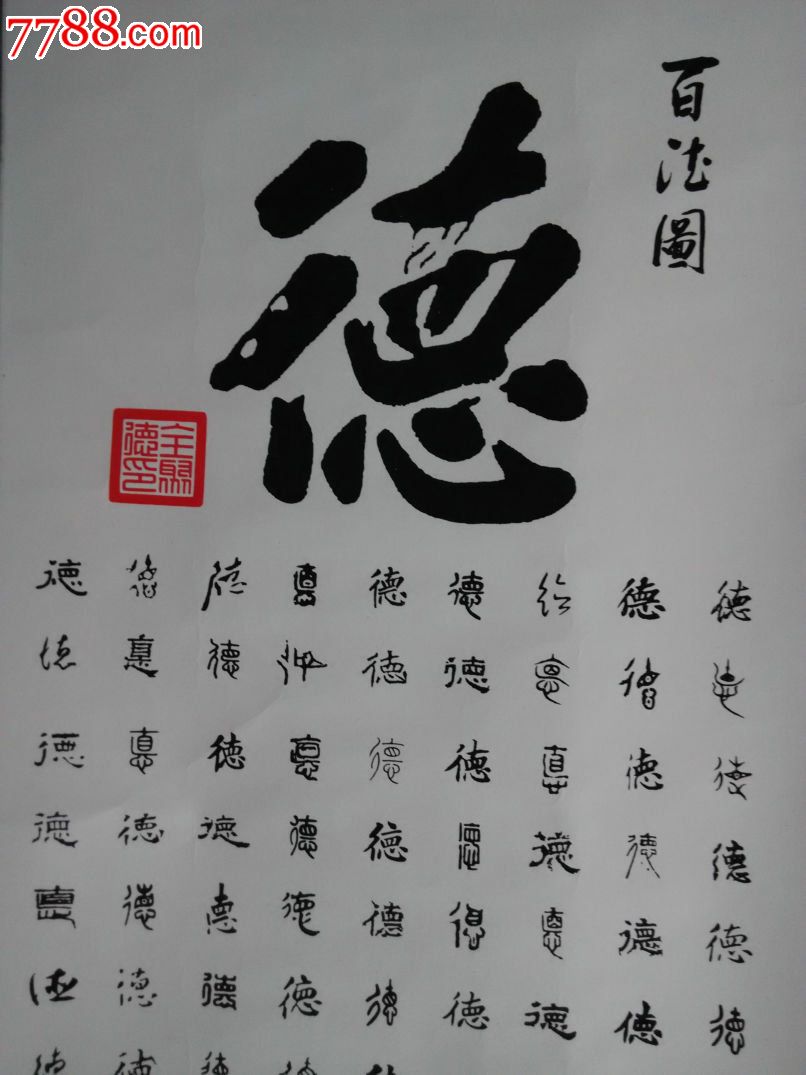 7788.com
百德圖
德
全聚德印
德 德 德 德 德 德 德 德 德
德 德 德 德 德 德 德 德 德
德 德 德 德 德 德 德 德 德
德 德 德 德 德 德 德 德 德
德 德 德 德 德 德 德 德 德
德 德 德 德 德 德 德 德 德